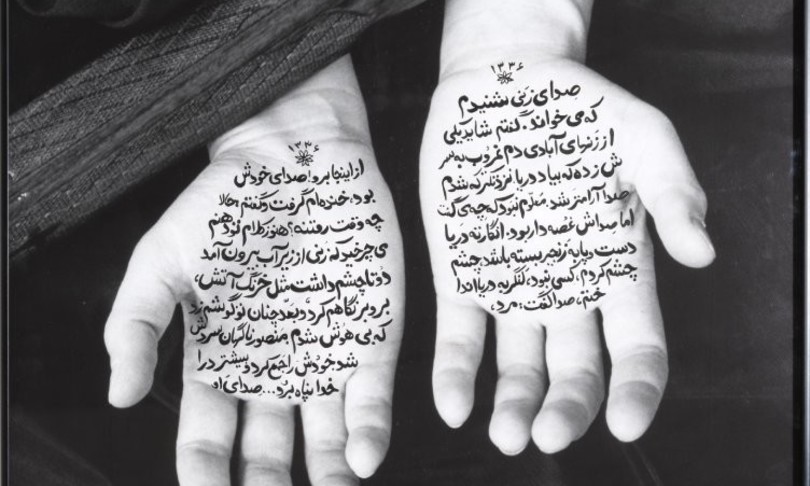 ۱۳۳۶
صدای زنی شنیدم
که می‌خواند. گفتم شاید یکی
از زنهای آبادی دم غروب به سر
ش زده که بیاد دریا. نزدیکتر که شدم
صدا آرامتر شد. معلوم نبود که چه می‌گفت
اما صداش غصه دار بود. انگار ته دریا
دست و پا به زنجیر بسته باشند. چشم
چشم کردم، کسی نبود، لنگر به دریا اندا
ختم، صدا گفت: مرد،
۱۳۳۶
از اینجا برو! صدای خودش
بود. خنده‌ام گرفت و گفتم حالا
چه وقت رفتنه؟ هنوز کلام تو دهنم
می چرخید که زنی از زیر آب بیرون آمد
دو تا چشم داشت مثل خرنگ آتش،
بر و بر نگاهم کرد و بعد چنان تو گوشم زد
که بی هوش شدم. منصور ناگهان سردش
شد خودش را جمع کرد و بیشتر در
خدا پناه برد... صدای او